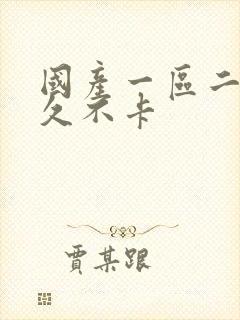 國產一區二
久不卡
賈某跟